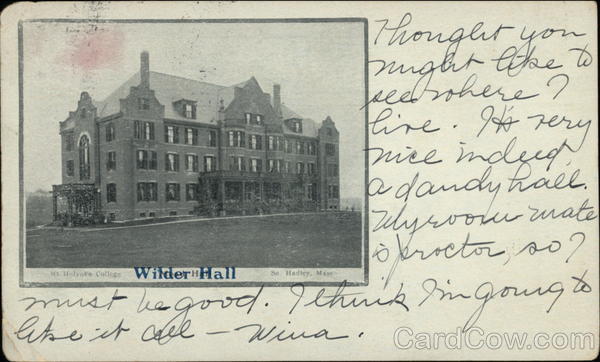 Thought you
might like to
see where I
live. It's very
nice indeed,
a dandy hall.
My room mate
is proctor, so I
must be good. I think I'm going to
like it all – Wina.
Mt Holyoke College
Wilder Hall
So. Hadley, Mass
CardCow.com